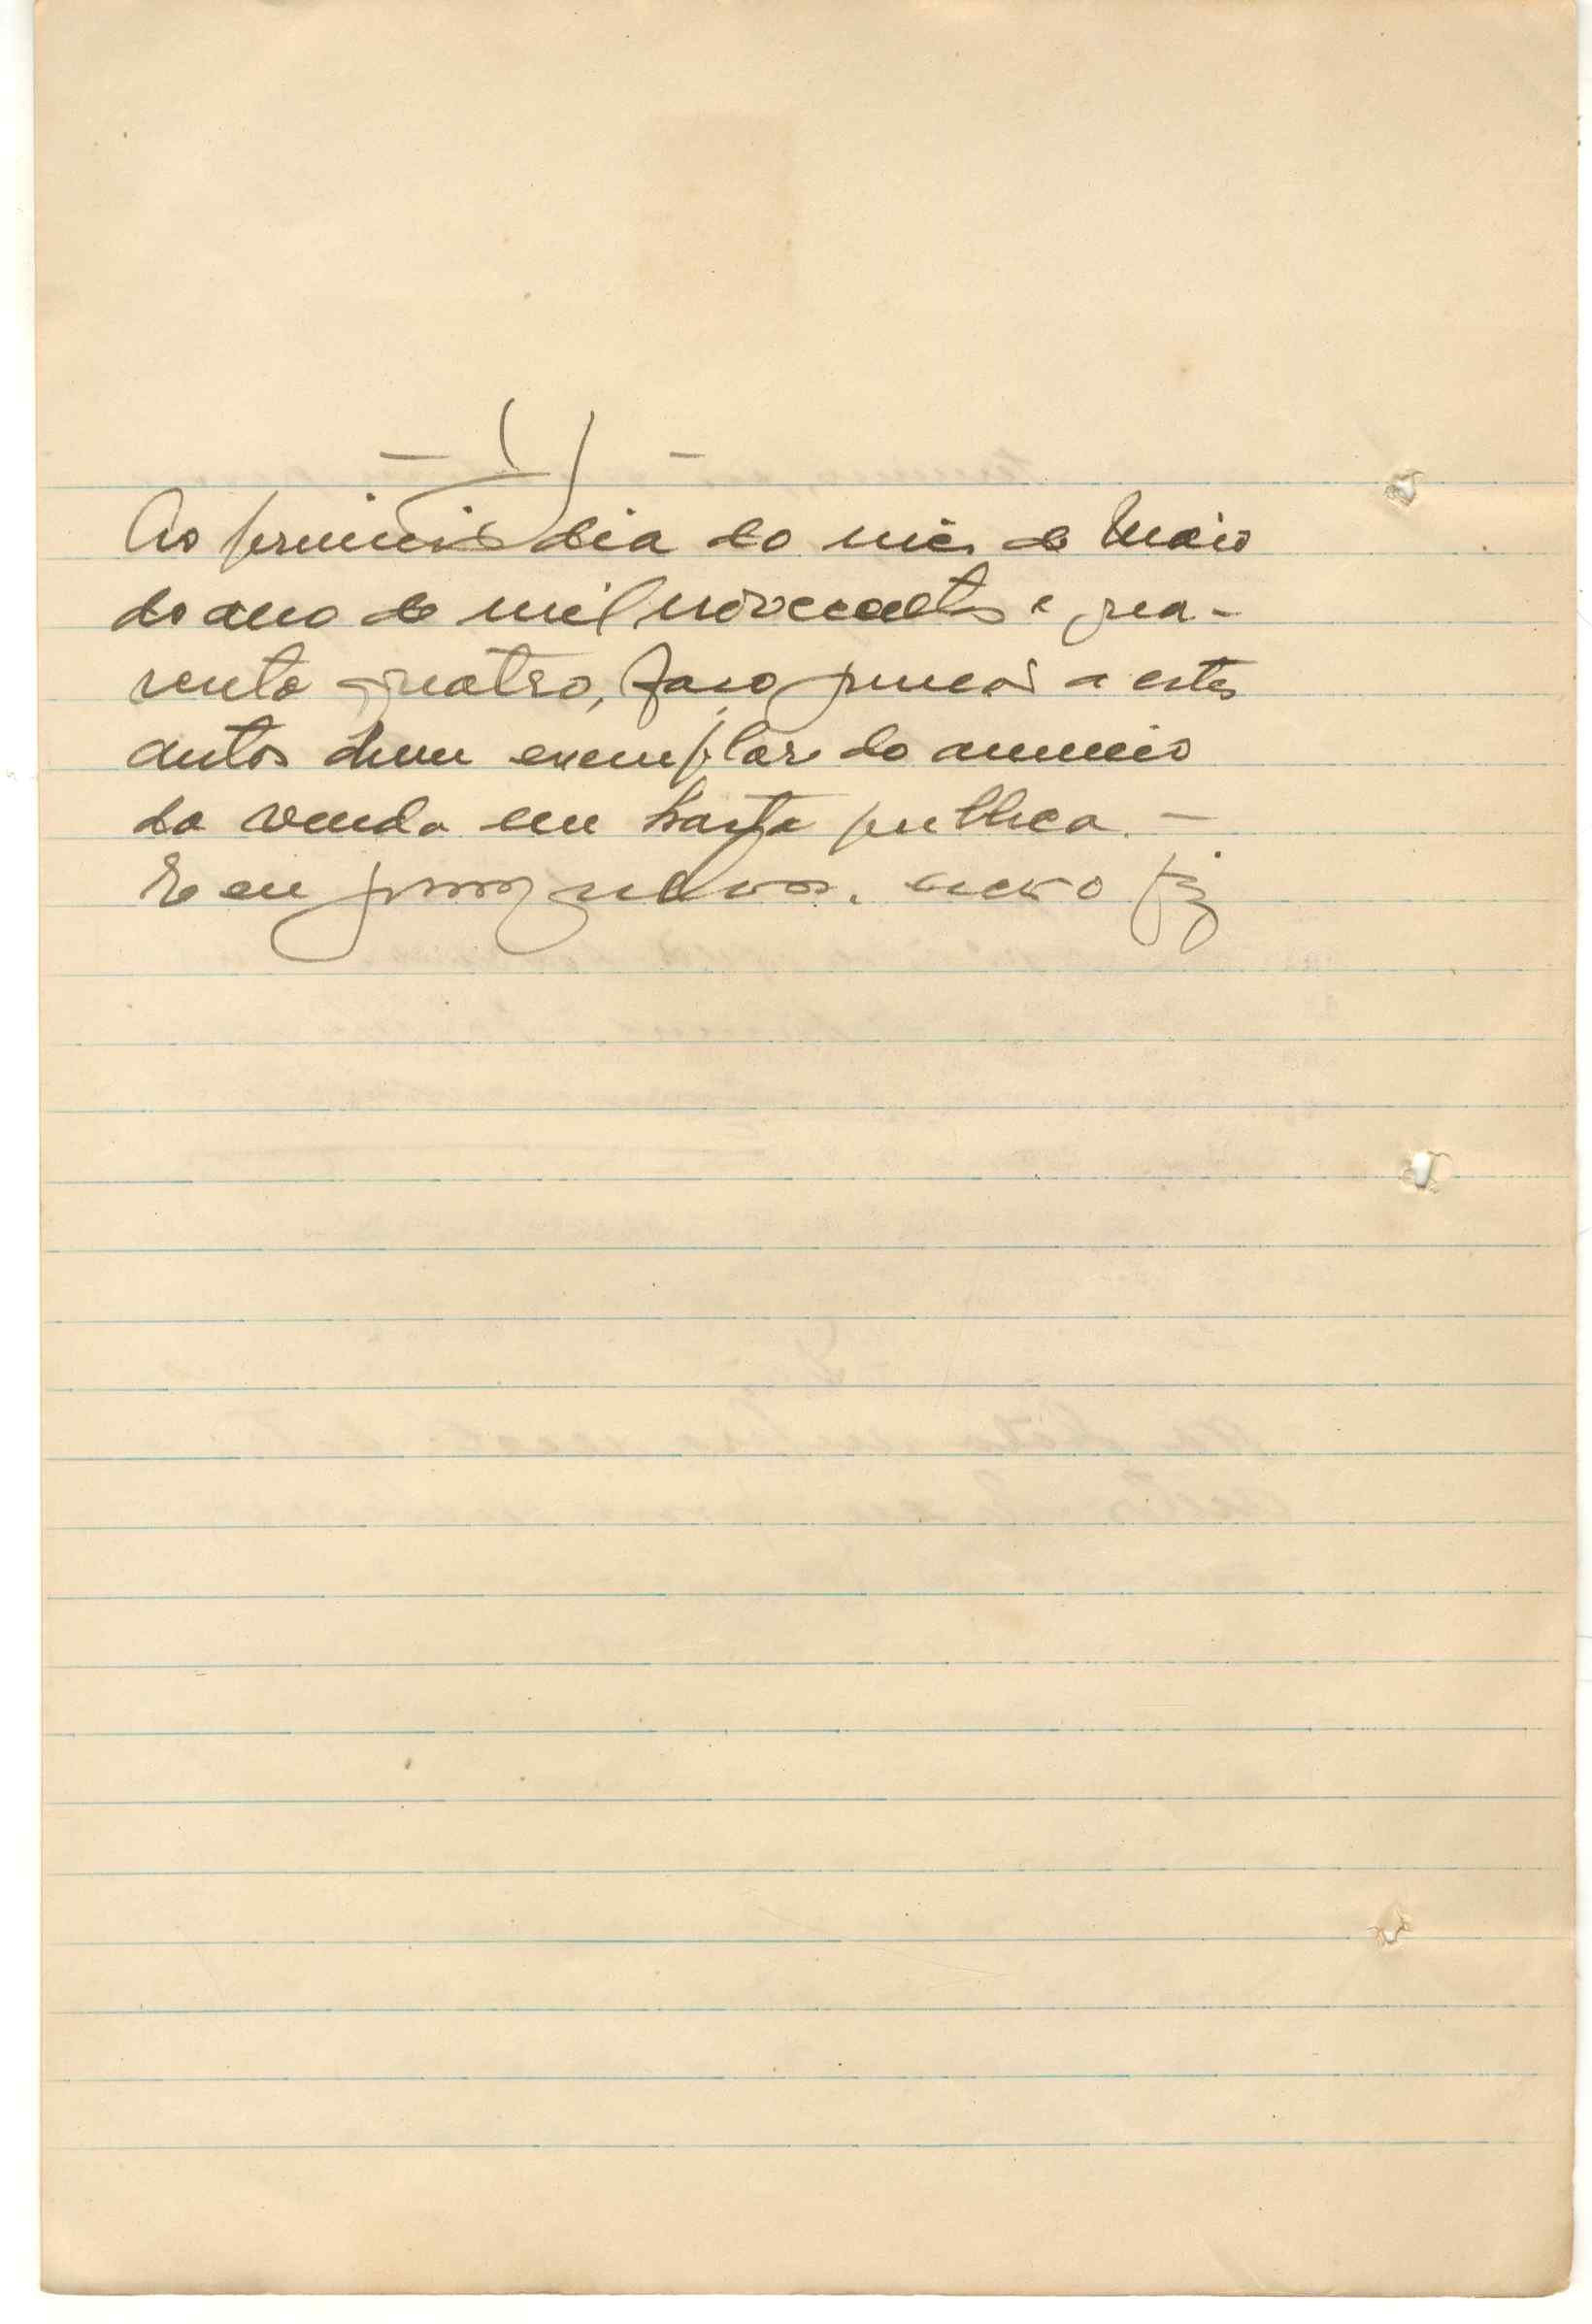 Ao primeiro dia do mês de Maio
do ano de mil novecentos e qua-
renta quatro, faço juncar a estes
autos dum exemplar do anuncio
da venda em hasta publica. —
E eu